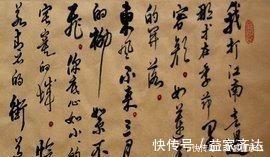 我打江南走
那等在季节里
容颜如莲
的开落
东风不来三月
的柳絮不
飞你底心如小小
寂寞的城
若青石的街
快传号/益家齐达